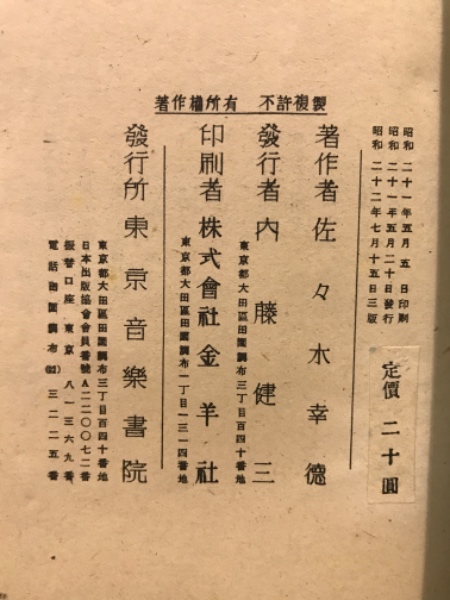 著作權所有　不許複製
昭和二十一年五月五日印刷
昭和二十一年五月二十日發行
昭和二十二年七月十五日三版
定價　二十圓
著作者　佐々木幸德
發行者　內藤健三
東京都大田區田園調布三丁目百四十番地
印刷者　株式會社金羊社
東京都大田區田園調布一丁目一三一四番地
發行所　東京音樂書院
東京都大田區田園調布三丁目百四十番地
日本出版協會會員番號A二二〇〇七二番
振替口座　東京　八一三六九番
電話田園調布(02)三二二五番